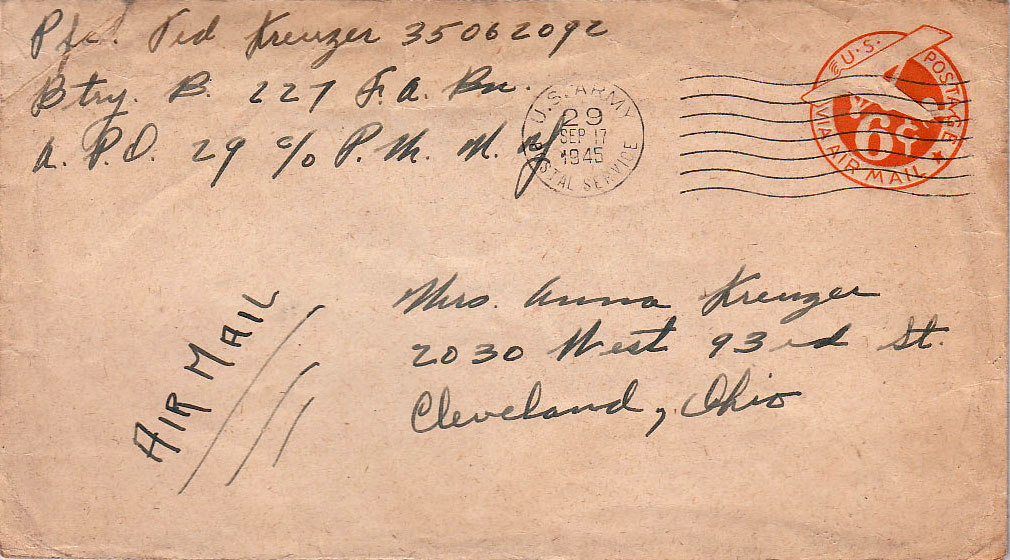 Pfc. Ted Kreuzer 35062092
Btry. B. 227 F.A. Bn.
A.P.O. 29 c/o P.M. N.Y.
U.S. ARMY
29
SEP 17
1945
POSTAL SERVICE
U.S. POSTAGE
6¢
VIA AIR MAIL
Mrs. Anna Kreuzer
2030 West 93rd St.
Cleveland, Ohio
AIR MAIL